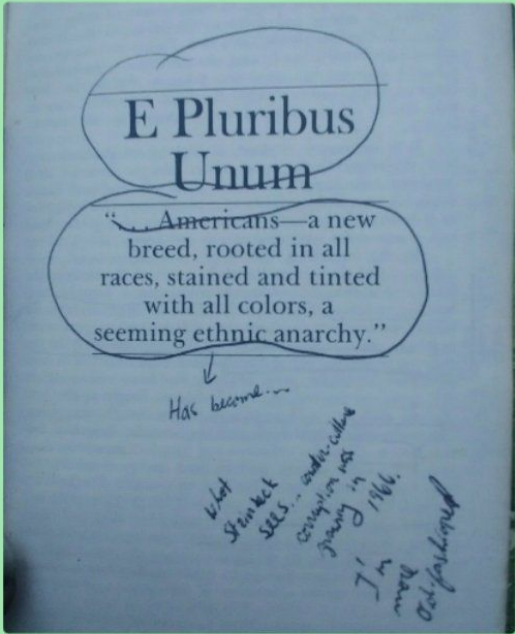 E Pluribus
Unum
“... Americans—a new
breed, rooted in all
races, stained and tinted
with all colors, a
seeming ethnic anarchy.”
Has become...
what
Steinbeck
sees... counter-culture
corruption was
growing in
1966.
I'm
more
Old-fashioned